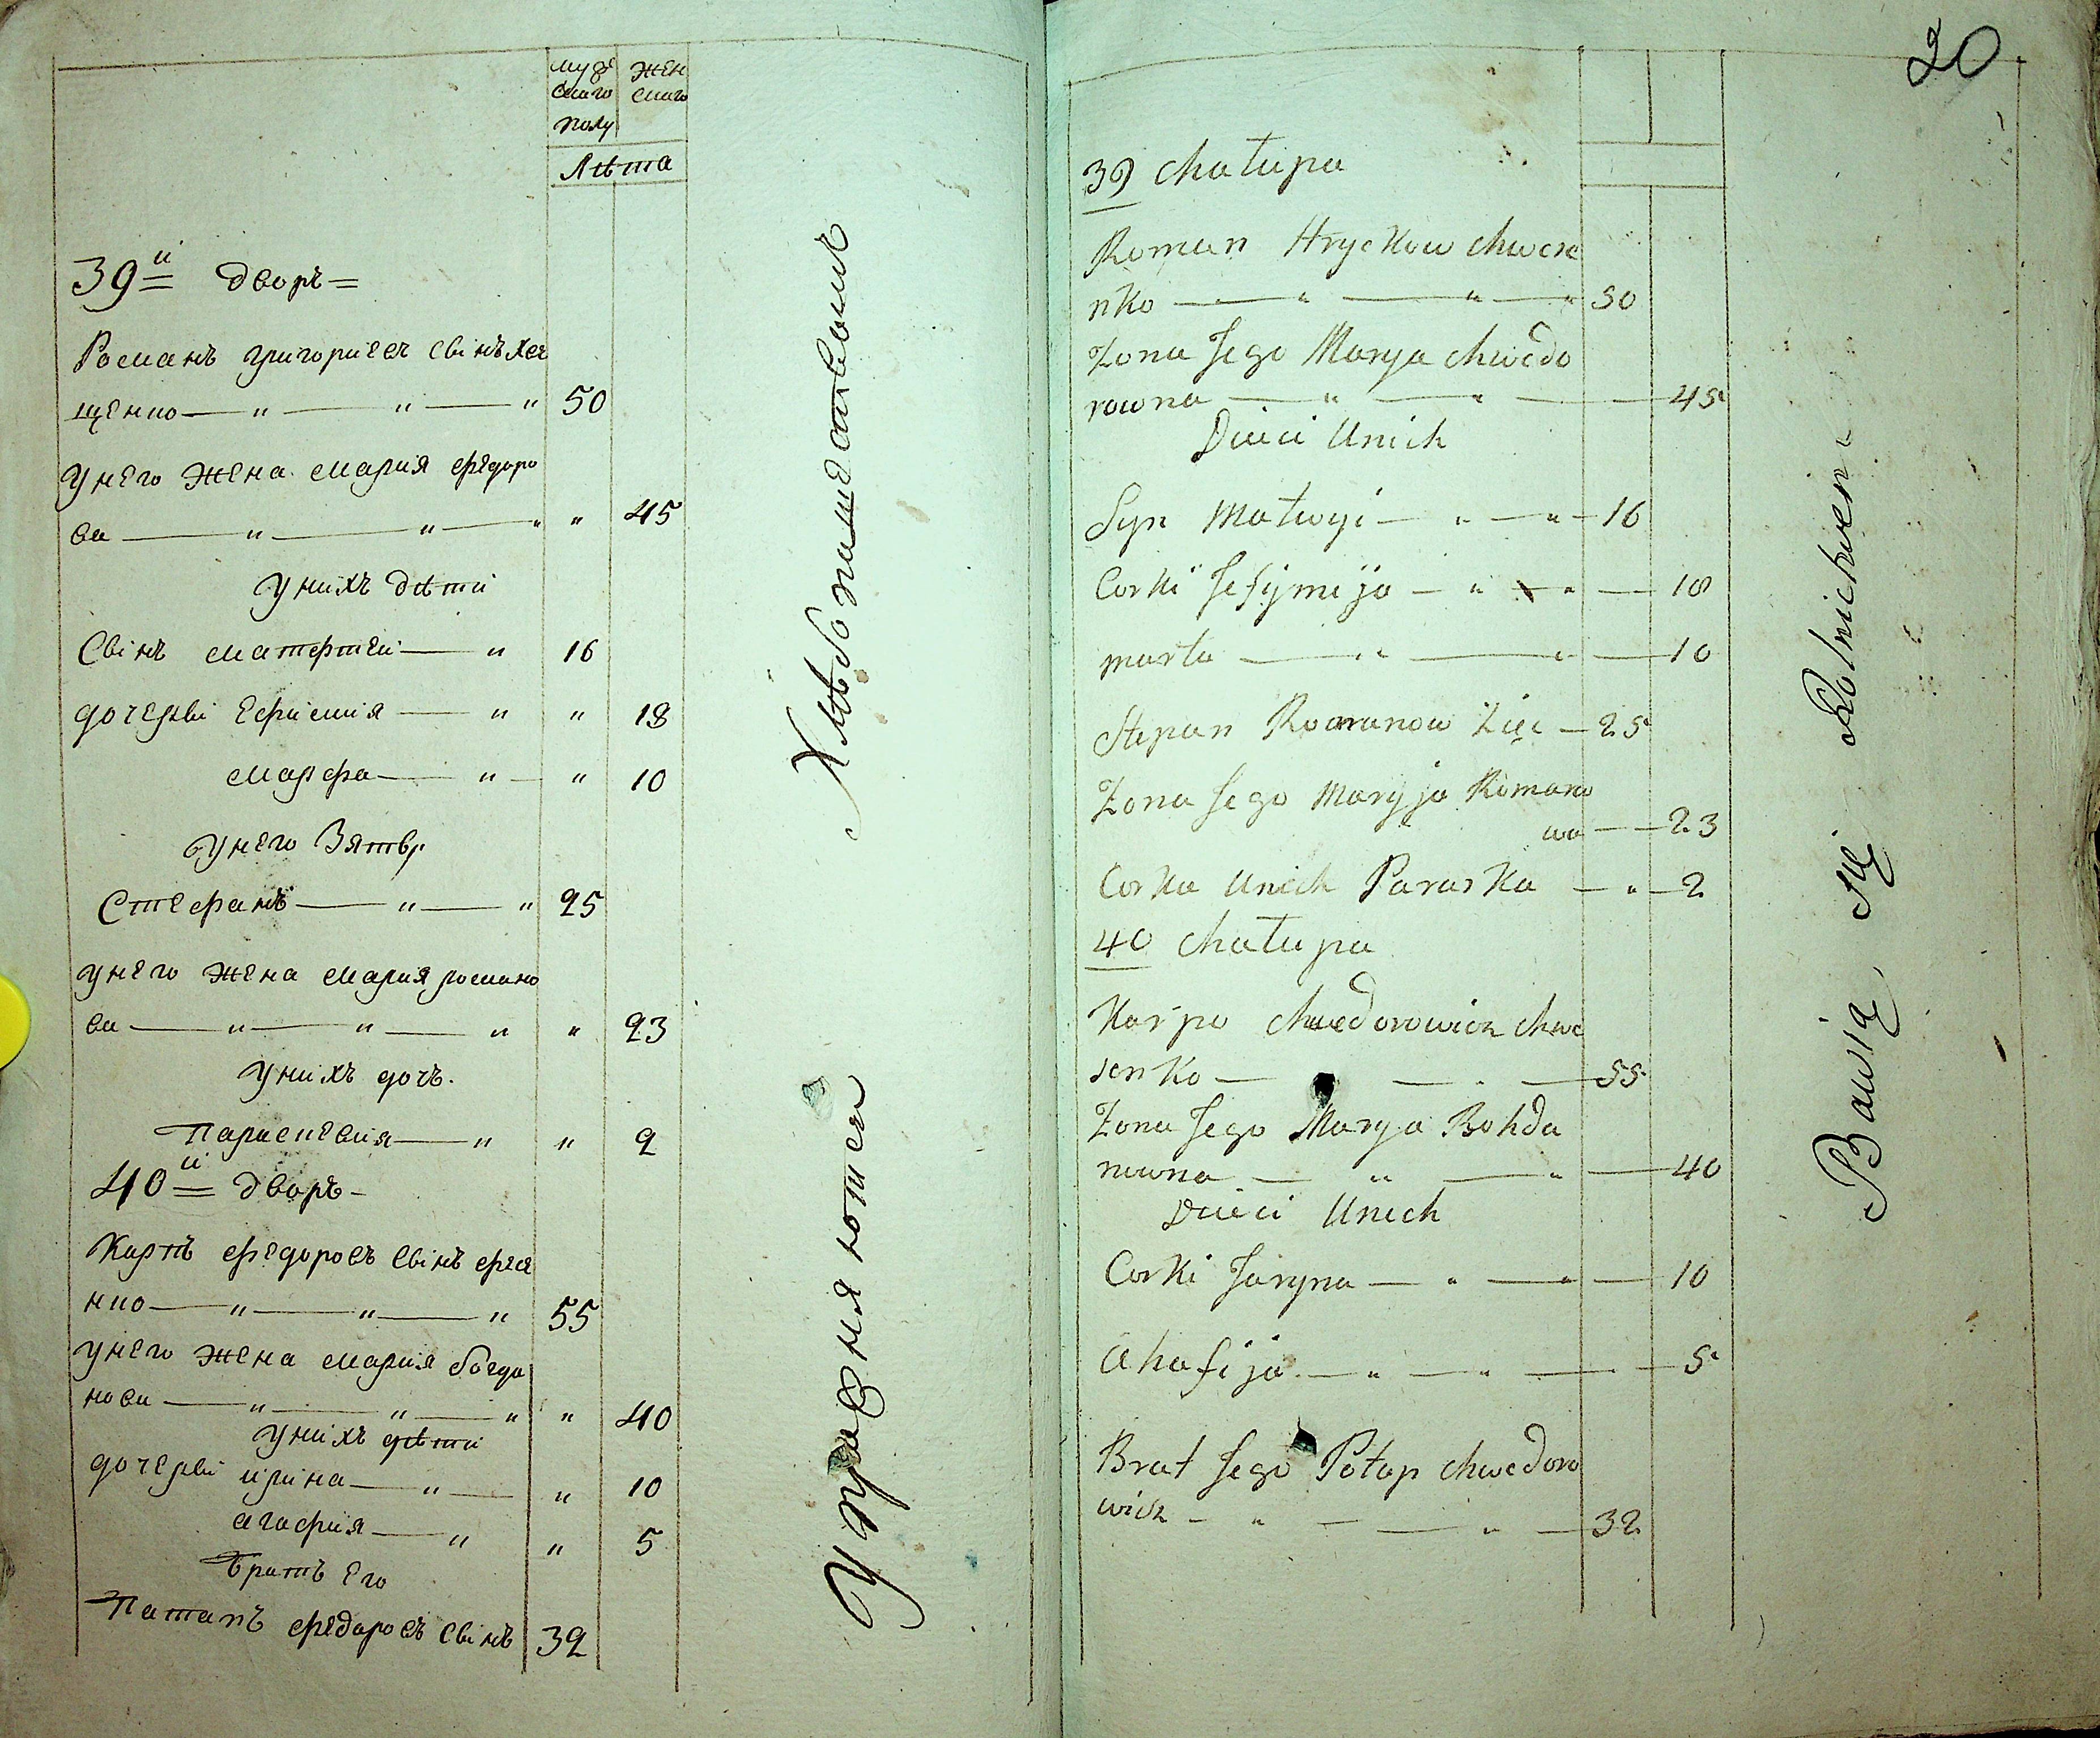 муж
скаго
полу
жен
скаго
Лѣта
39й дворъ
Романъ григориевъ сынъ хве
щенко — " — " — " 50
У него жена мария федоро
ва — " — " — " " 45
У нихъ дѣти
Сынъ матфтей — " 16
дочеры ефимия — " " 18
марфа — " — " 10
У него Зять
Стефанъ — " — " 25
У него жена мария романо
ва — " — " — " " 23
У нихъ дочь.
Параскевия — " " 2
40й дворъ
Карпъ федоровъ сынъ фесе
нко — " — " — " 55
У него жена мария богда
нова — " — " — " " 40
У нихъ дѣти
дочеры ирина — " — " 10
агафия — " " 5
братъ Его
Патапъ федоровъ сынъ 32
Упражняютса Хлѣбопашествомъ
20
39 chałupa
Roman Hryckow chwese
nko — " — " — " 50
Zona Jego Marya chwedo
rowna — " — " — 45
Dzieci Unich
Syn Matwyi — " — " — 16
Corki Jefymija — " — " — 18
marta — " — " — 10
Stepan Romanow Zięc — 25
Zona Jego Maryja Romano
wa — 23
Corka Unich Paraska — " — 2
40 chałupa
Karpo chwedorowicz chwe
senko — " — 55
Zona Jego Marya Bohda
nowna — " — " — 40
Dzieci Unich
Corki Jaryna — " — " — 10
Ahafija — " — " — 5
Brat Jego Potap chwedoro
wicz — " — " — 32
Bawią się Rolnictwem